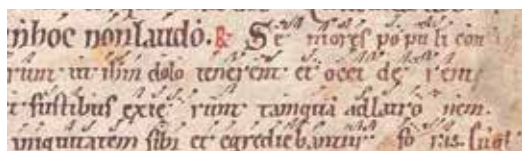 inhoc nonlaudo. & Se niores po pu li con
runt ut ihm dolo tenerent et occi de rent
fustibus exie runt tamquā adlatro nem.
iniquitatem sibi et egrediebantur fo ras.